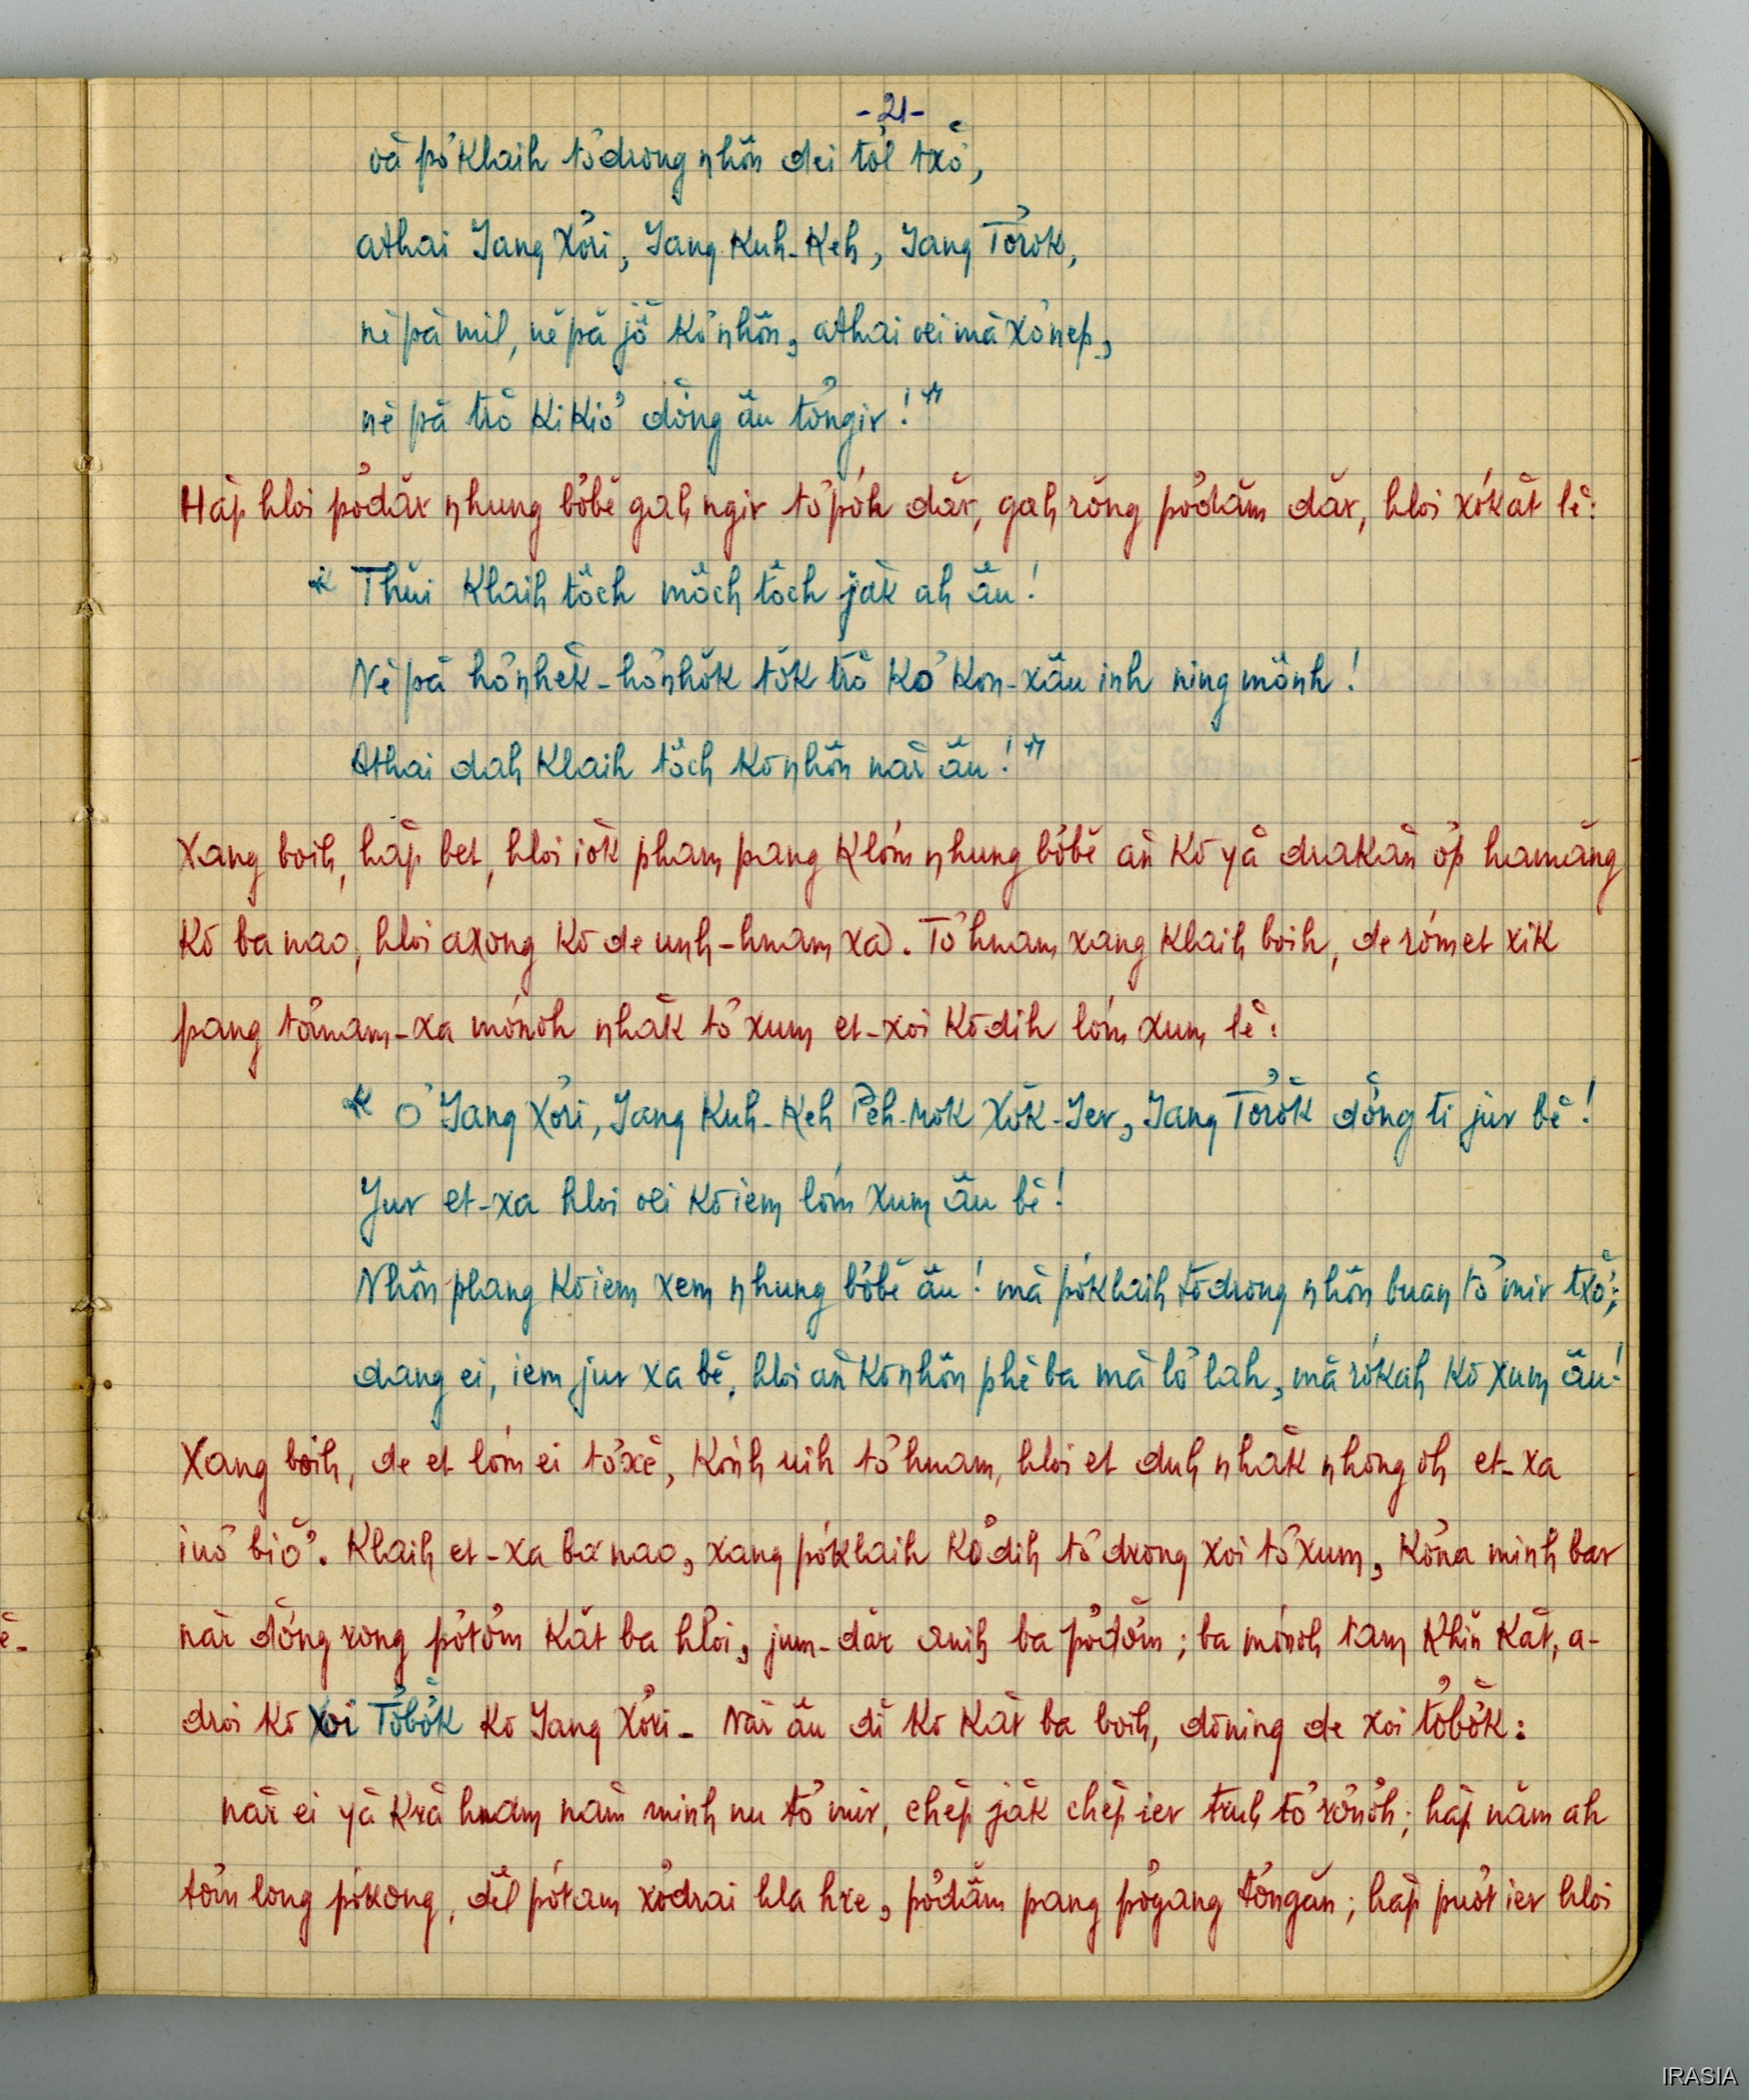 -21-
vă pơklaih tơdrong nhôn dei tơl txŏ,
athai Jang Xơri, Jang Kuh-Keh, Jang Tơrok,
nĕ pă mil, nĕ pă jŏ kơ nhôn, athai oei mă xơnep,
nĕ pă trŏ kikiơ dơ̆ng ău tơngir !"
Hăp hloi pơdăr nhung bơbĕ gah ngir tơpơh dăr, gah rŏng pơdăm dăr, hloi xơkăt lĕ:
" Thŭi klaih tŏch mŏch tŏch jăk ah ău !
Nĕ pă hơnhĕk-hơnhŏk tŏk trŏ kơ kon-xău inh ning mônh !
Athai dah klaih tŏch kơ nhôn năr ău ! "
Xang boih, hăp bet, hloi iŏk pham pang klơ̆m nhung bơbĕ ăn kơ yă drakăn ŏp hamăng
kơ ba nao, hloi axong kơ de unh-hnam xa). Tơ hnam xang klaih boih, de rơ̆m et xik
pang tơmam-xa mơ̆nơ̆h nhăk tơ xum et-xoi kơdih lơ̆m xum lĕ:
" Ơ Jang Xơri, Jang Kuh-Keh Pĕh-Mok Xŏk-Ier, Jang Tơrŏk dơ̆ng ti jur bĕ !
Jur et-xa hloi oei kơ iem lơ̆m xum ău bĕ !
Nhôn phang kơ iem xem nhung bơbĕ ău ! mă pơklaih tơdrong nhôn buan tơ mir txŏ;
dang ei, iem jur xa bĕ, hloi ăn kơ nhôn phĕ ba mă lơ lah, mă rơkah kơ xum ău !
Xang boih, de et lơ̆m ei tơxĕ, kơ̆nh uih tơ hnam, hloi et duh nhăk nhŏng oh et-xa
inơ̆ biơ̆. Klaih et-xa ba nao, xang pơklaih kơdih tơdrong xoi tơ xum, kơna minh bar
năr dơ̆ng rong pơtơm kăt ba hloi, jum-dăr anih ba pơtơm; ba mơ̆nơ̆h tam khin kăt, a-
droi kơ xoi Tơbŏk kơ Jang Xơri - Năr ău dĭ kơ kăt ba boih, dơning de xoi tơbŏk:
năr ei yă kră hnam năm minh nu tơ mir, chĕp jăk chĕp ier truh tơ rơnŏh; hăp năm ah
tơm long pơkong, dĕl pơtam xơdrai hla hre, pơdăm pang pơgang tơngăn; hăp puơt ier hloi
IRASIA